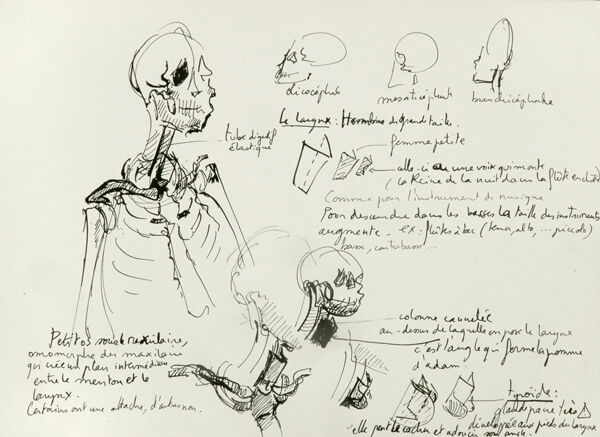 dicocéphale
mesaticéphale
brachicéphale
Le larynx : Homme de grand taille.
tube digestif
élastique
femme petite
celle-ci a une voix qui monte
(La Reine de la nuit dans la flûte enchantée)
Comme pour l'instrument de musique
Pour descendre dans les basses la taille des instruments
augmente. ex : flûtes à bec (tenor, alto, ... piccolo)
basse, contrebasse...
colonne cannelée
au-dessus de laquelle on pose le larynx
c'est l'angle qui forme la pomme
d'adam.
Petit os sous le maxillaire,
omomorphe des maxilaire
qui crée un plan intermédiaire
entre le menton et le
larynx.
Certains ont une attache, d'autres non.
tyroïde :
glande paire très
développé aux pieds du larynx
elle peut le cacher et adoucir son angle.